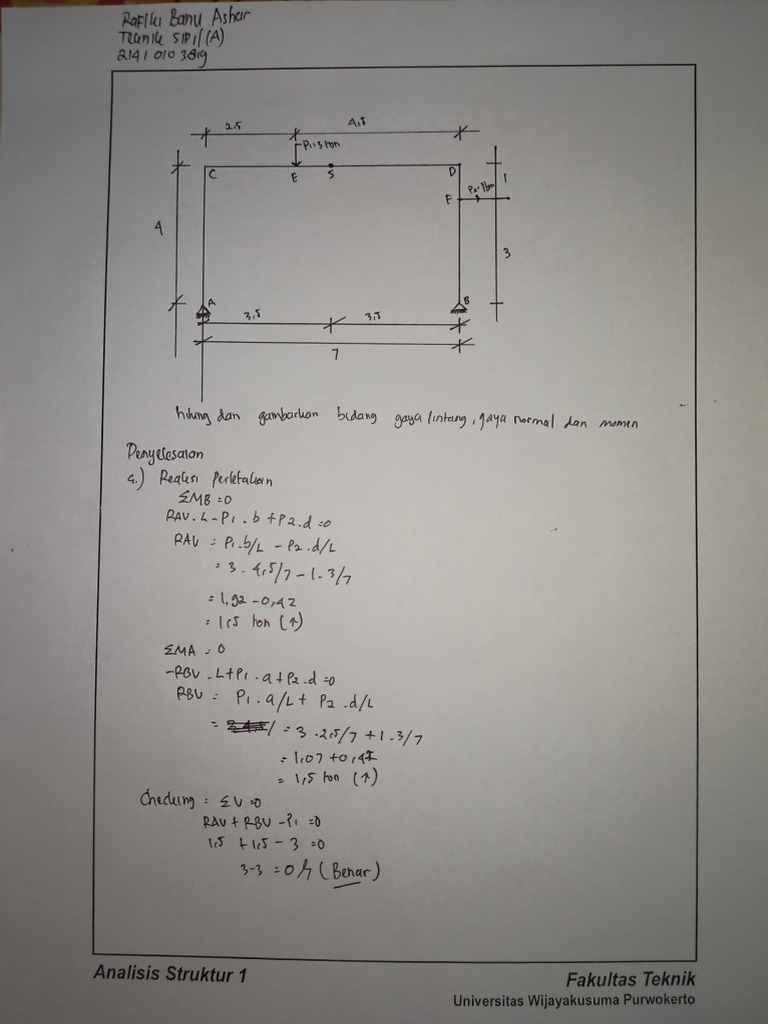 Rafiki Banu Ashar
Teknik Sipil (A)
2141 010 3819
2.5 4,5
P1=3 ton
C E S D 1
F P2=1ton
4 3
A B
3,5 3,5
7
hitung dan gambarkan bidang gaya lintang, gaya normal dan momen
Penyelesaian
a.) Reaksi Perletakan
ΣMB =0
RAV.L-P1.b+P2.d=0
RAV = P1.b/L - P2.d/L
= 3.4,5/7 - 1.3/7
= 1,92 - 0,42
= 1,5 ton (↑)
ΣMA = 0
-RBV.L+P1.a+P2.d=0
RBV = P1.a/L + P2.d/L
= = 3.2,5/7 + 1.3/7
= 1,07 + 0,42
= 1,5 ton (↑)
Checking : ΣV =0
RAV + RBV - P1 =0
1,5 + 1,5 - 3 =0
3-3 =0 // (Benar)
Analisis Struktur 1
Fakultas Teknik
Universitas Wijayakusuma Purwokerto